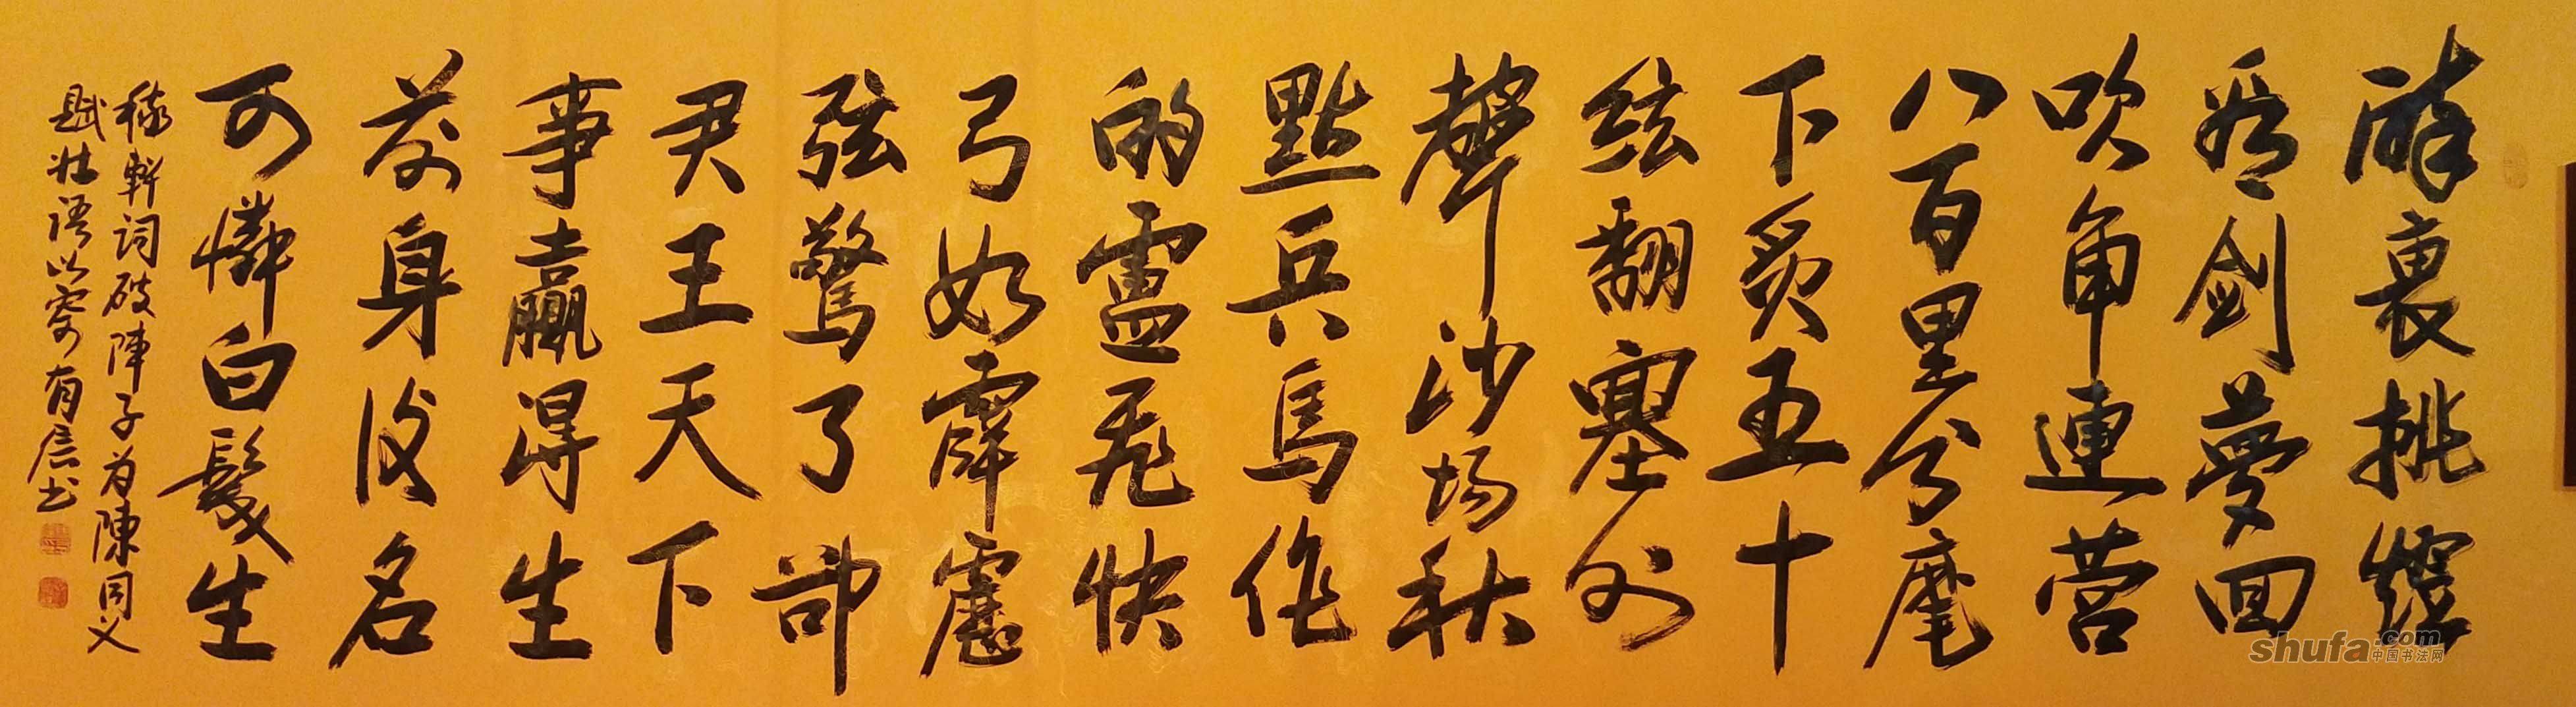 醉裏挑燈
看劍夢回
吹角連營
八百里分麾
下炙五十
絃翻塞外
聲沙场秋
點兵馬作
的盧飛快
弓如霹靂
弦驚了卻
君王天下
事贏得生
前身後名
可憐白髮生
稼軒詞破陣子为陳同父
賦壯語以寄 有辰书
shufa.com
中国书法网